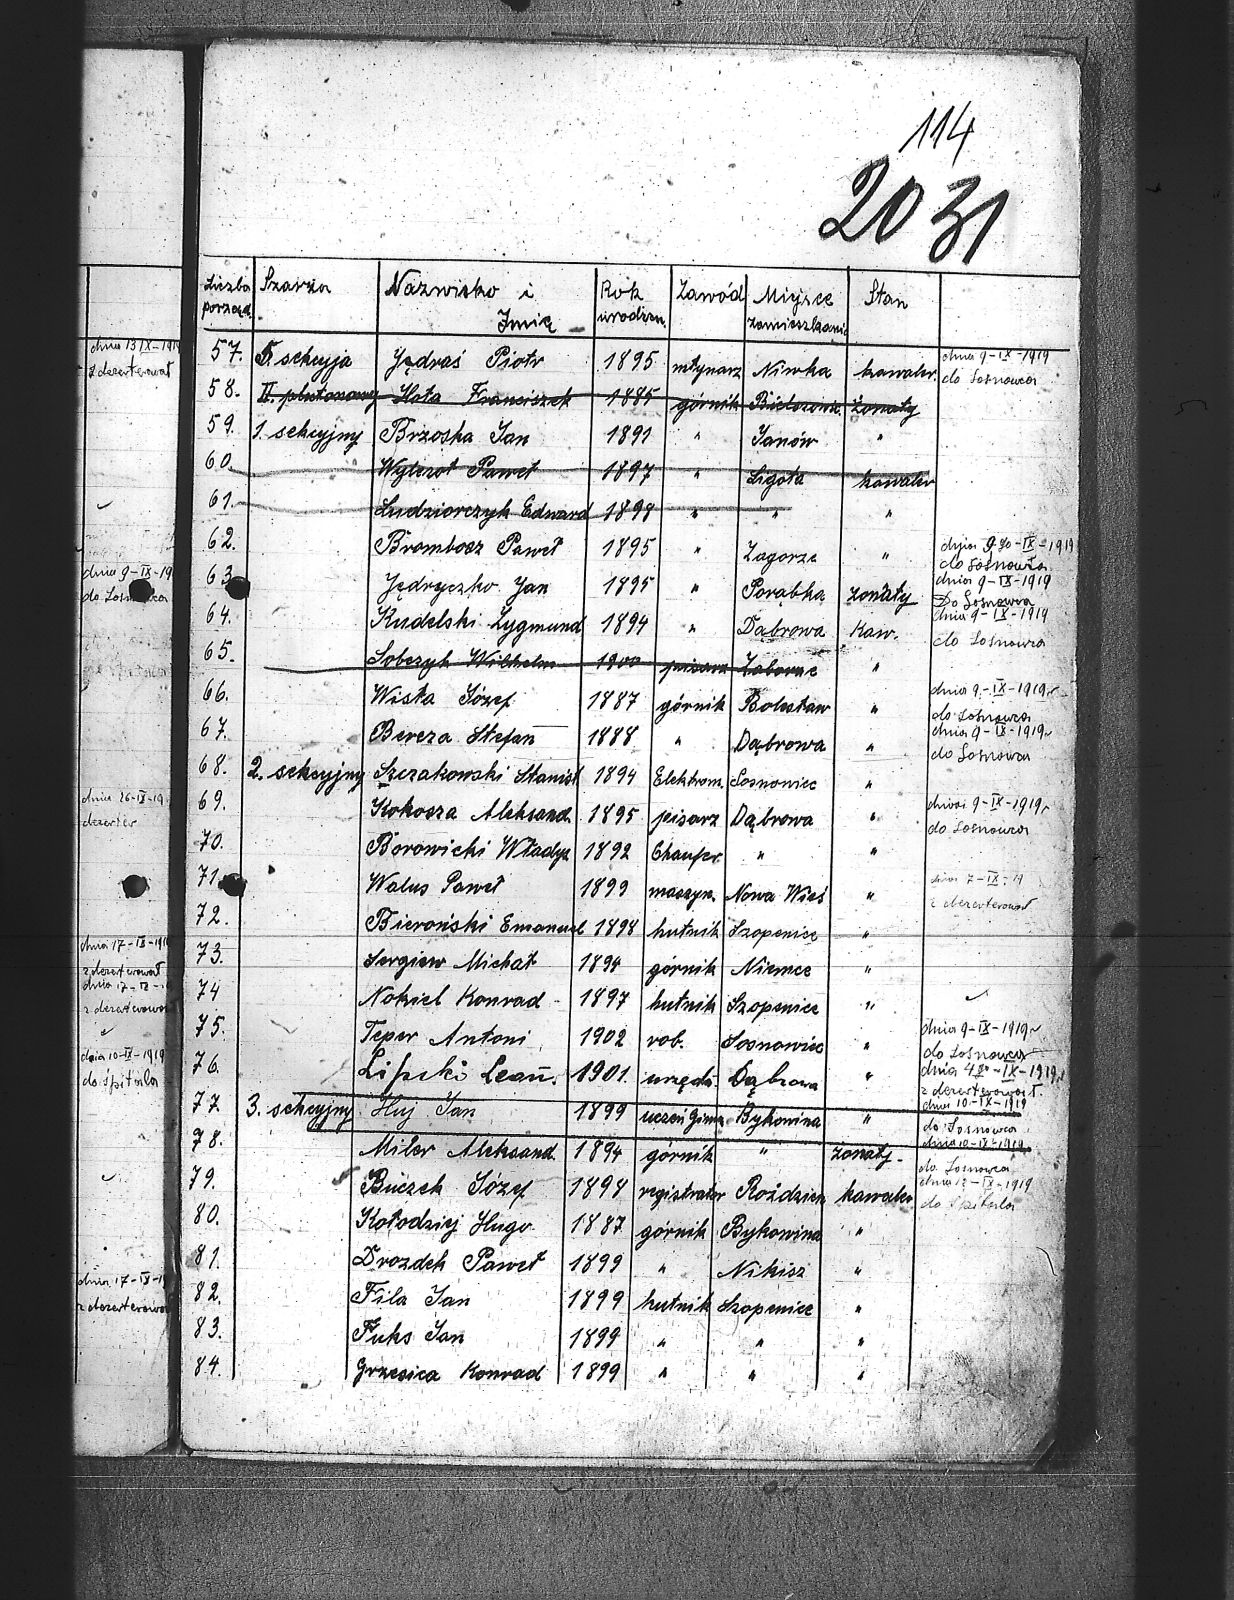 114
20 31
Liczba porząd. Szarża Nazwisko i Imię Rok urodzen. Zawód Miejsce zamieszkania Stan
57. 5 sekcyja Jędraś Piotr 1895 młynarz Niwka kawaler dnia 9-IX-1919 do Sosnowca
58. II. plutonowy Hota Franciszek 1885 górnik żonaty
59. 1. sekcyjny Brzoska Jan 1891 " Janów "
60. Paweł 1897 " Ligota kawaler
61. Ludziorczyk Edward 1898 " " "
62. Brombosz Paweł 1895 " Zagorze " dnia IX-1919 do Sosnowca
63. Jędryczko Jan 1895 " Porąbka żonaty dnia 9-IX-1919 Do Sosnowca
64. Kudelski Zygmund 1894 " Dąbrowa Kaw. dnia 9-IX-1919 do Sosnowca
65. Sobczyk Wilhelm 1900 pisarz Zaborze "
66. Wisła Józef 1887 górnik Bolesław " dnia 9-IX-1919 do Sosnowca
67. Bereza Stefan 1888 " Dąbrowa " dnia 9-IX-1919 do Sosnowca
68. 2. sekcyjny Szczakowski Stanisł 1894 Elektrom. Sosnowiec "
69. Kokosza Aleksand. 1895 pisarz Dąbrowa " dnia 9-IX-1919 do Sosnowca
70. Borowicki Władys 1892 Chaufer " "
71. Walus Paweł 1899 maszyn. Nowa Wieś " dnia 7-IX-19 zdezerterował
72. Bieroński Emanuel 1898 hutnik Szopenice "
73. Sergiew Michał 1894 górnik Niemce "
74 Nokiel Konrad 1897 hutnik Szopenice "
75. Teper Antoni 1902 rob. Sosnowiec " dnia 9-IX-1919 do Sosnowca
76. Lipski Lean. 1901 urzęd. Dąbrowa " dnia IX-1919 zdezerterował.
77. 3. sekcyjny Huj Jan 1899 uczeń Gimn. Bykowina " dnia 10-IX-1919 do Sosnowca
78. Miler Aleksand. 1894 górnik " żonaty dnia 10-IX-1919 do Sosnowca
79. Buczek Józef 1898 registrator Roździen kawaler dnia 12-IX-1919 do Szpitala
80. Kołodziej Hugo 1887 górnik Bykowina "
81. Drozdek Paweł 1899 " Nikisz "
82. Fila Jan 1899 hutnik Szopenice "
83. Fuks Jan 1899 " " "
84. Grzesica Konrad 1899 " " "
dnia 13 IX-1919
zdezerterował
dnia 9-IX-19
do Sosnowca
dnia 26-IX-19
dezerter
dnia 17-IX-191
zdezerterował
dnia 17-IX-1
zdezerterował
dnia 10-IX-1919
do śpitala
dnia 17-IX-1
zdezerterował